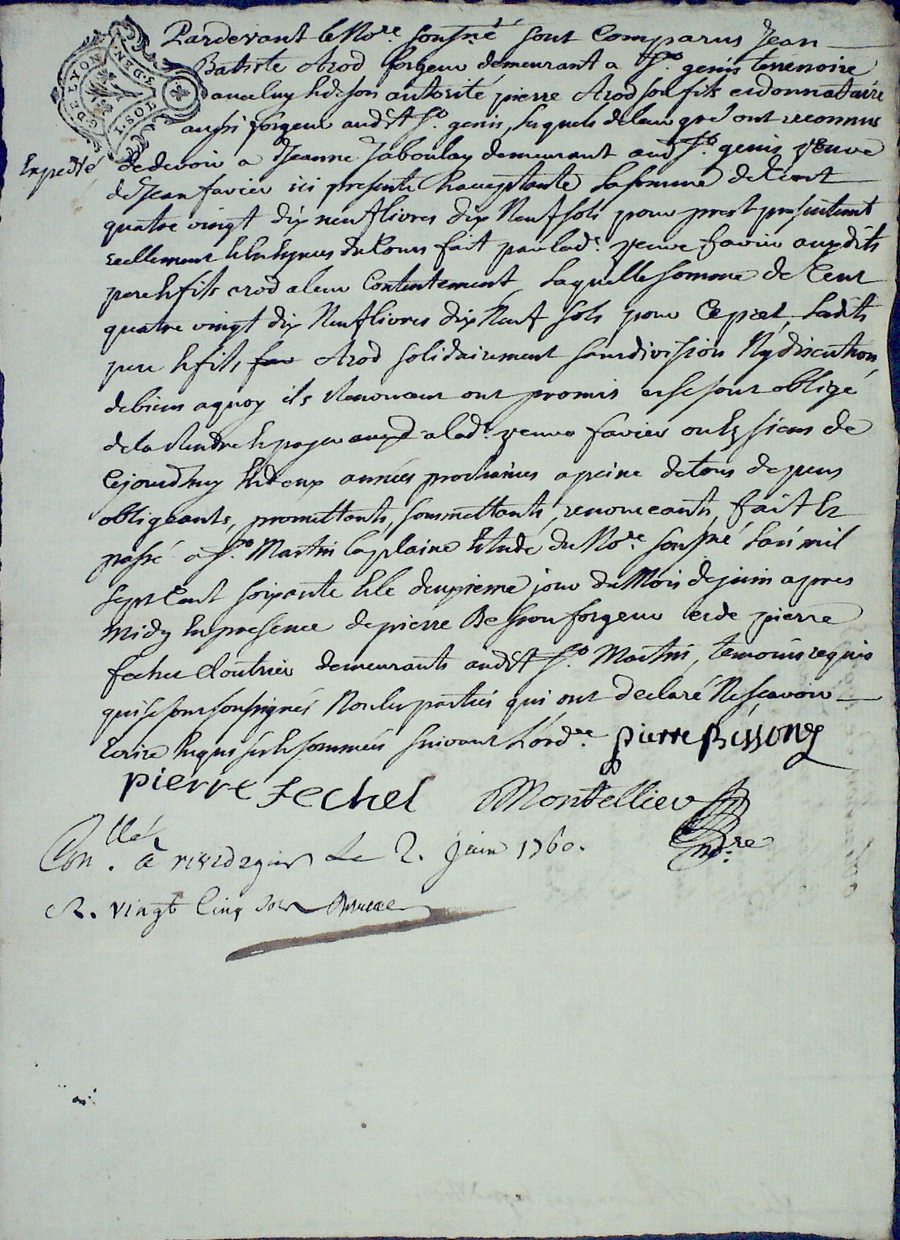 G. DE LYON
1 SOL 4 DEN.
Pardevant le No.re soussné sont Comparus Jean
Batiste Arod forgeur demeurant a St. genis terrenoire
avec luy & de son autorité pierre Arod son fils et donnataire
aussi forgeur audit St. genis, lesquels de leur gré ont reconnus
Expedié
de devoir a Jeanne Jaboulay demeurant audit St. genis veuve
de Jean favier ici presente & acceptante la somme de Cent
quatre vingt dix neuf livres dix Neuf sols pour prest presentement
reellement & en Especes du Cours fait par lad. veuve favier auxdits
pere & fils arod a leur Contentement, Laquelle somme de Cent
quatre vingt dix Neuf livres dix Neuf sols pour Ce pret, Lesdits
pere & fils Arod solidairement sans division Ny discution
de biens a quoy ils Renoncent ont promis et se sont obligé
de la Rendre & payer a lad. veuve favier ou les siens de
Cejourdhuy & deux années prochaines a peine de tous depens
obligeants, promettants, soumettants, renonceants, fait &
passé a St. Martin la plaine Etude du No.re soussné Lan mil
sept Cent soixante & le deuxieme jour du Mois de juin apres
Midy En presence de pierre Besson forgeur et de pierre
fechel Cloutrier demeurants audit St. Martin, temoins requis
qui se sont soussignés Non les parties qui ont declaré Ne scavoir
Ecrire Enquis & sommées suivant L'ord.re pierre Besson
pierre fechel Montellier
No.re
Con.llé à rivedegier Le 2. juin 1760.
R. vingt Cinq sols